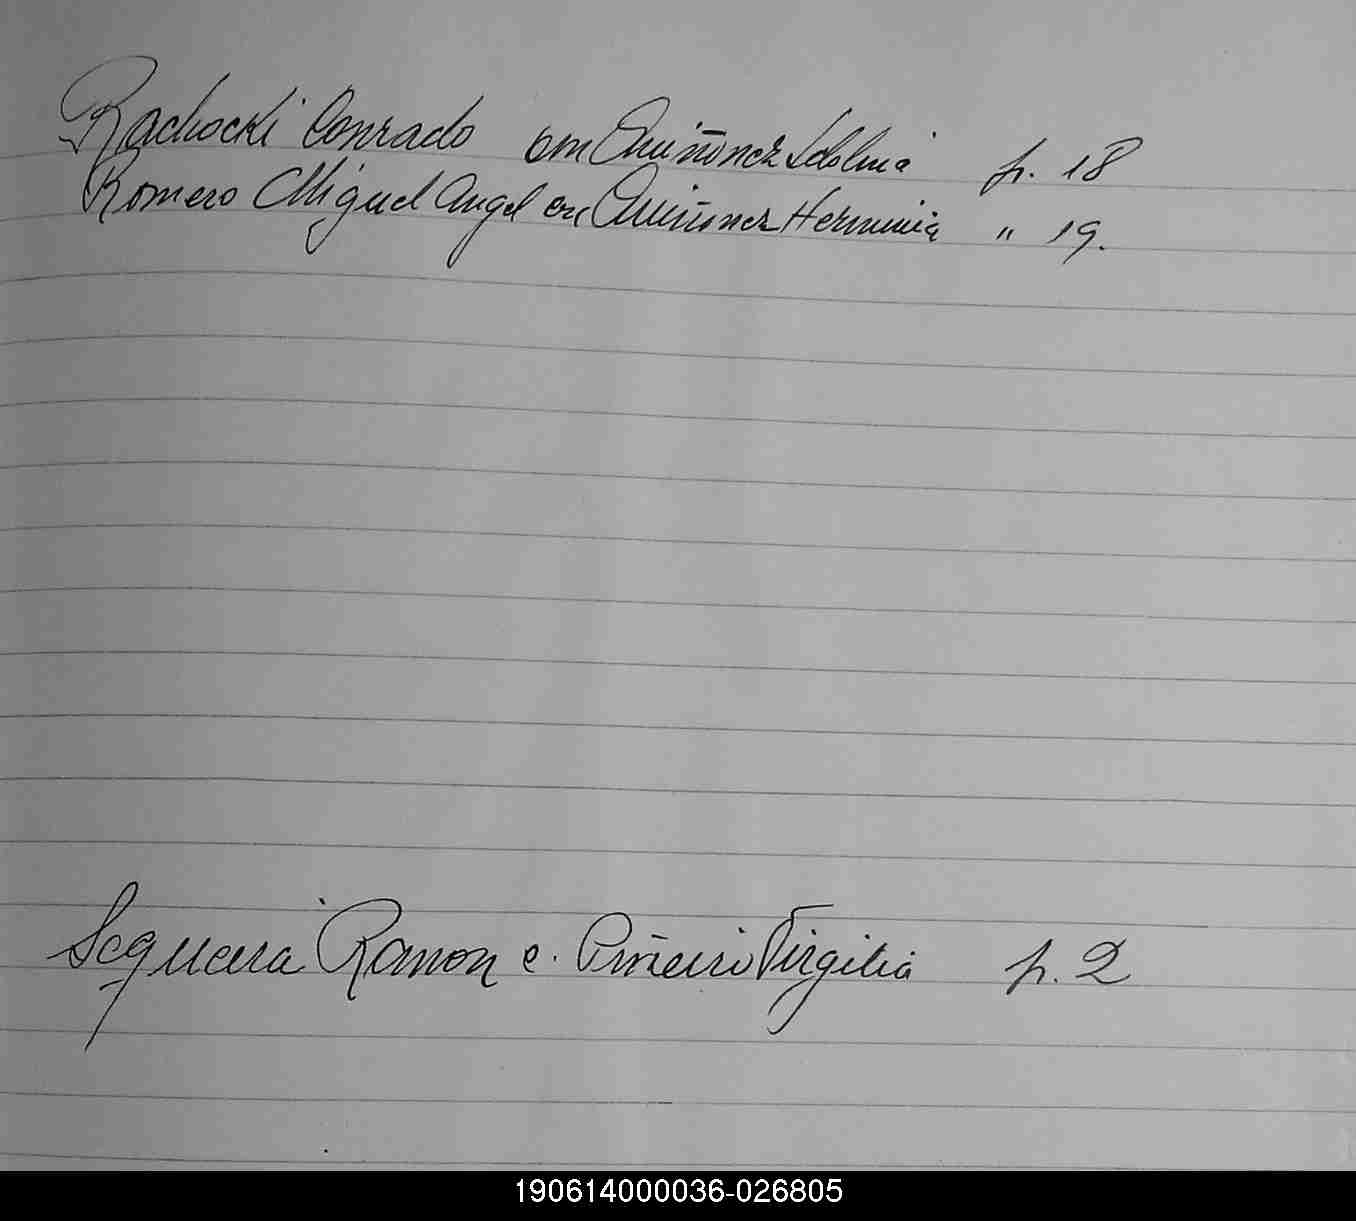 Rachocki Conrado con Quiñonez p. 18
Romero Miguel Angel con Quiñonez Herminia " 19.
Sequeira Ramon c. Piñeiro Virgilia p. 2
190614000036-026805